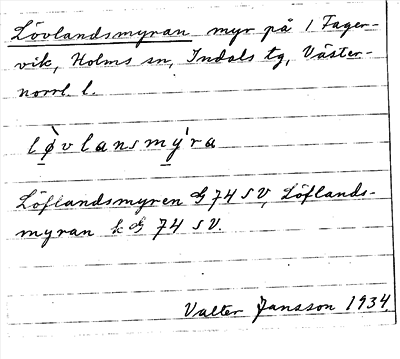 Lövlandsmyran myr på 1 Fager-
vik, Holms sn, Indals tg, Väster-
norrl. l.
lø̀vlansmýra
Löflandsmyren 74 SV, Löflands-
myran k 74 SV.
Valter Jansson 1934.